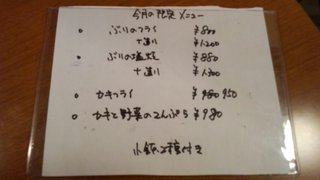 今月の限定メニュー
。ぶりのフライ ¥800
+造り ¥1200
。ぶりの塩焼 ¥850
+造り ¥1300
。カキフライ ¥980 950
。カキと野菜の天ぷら ¥980
小鉢2種付き